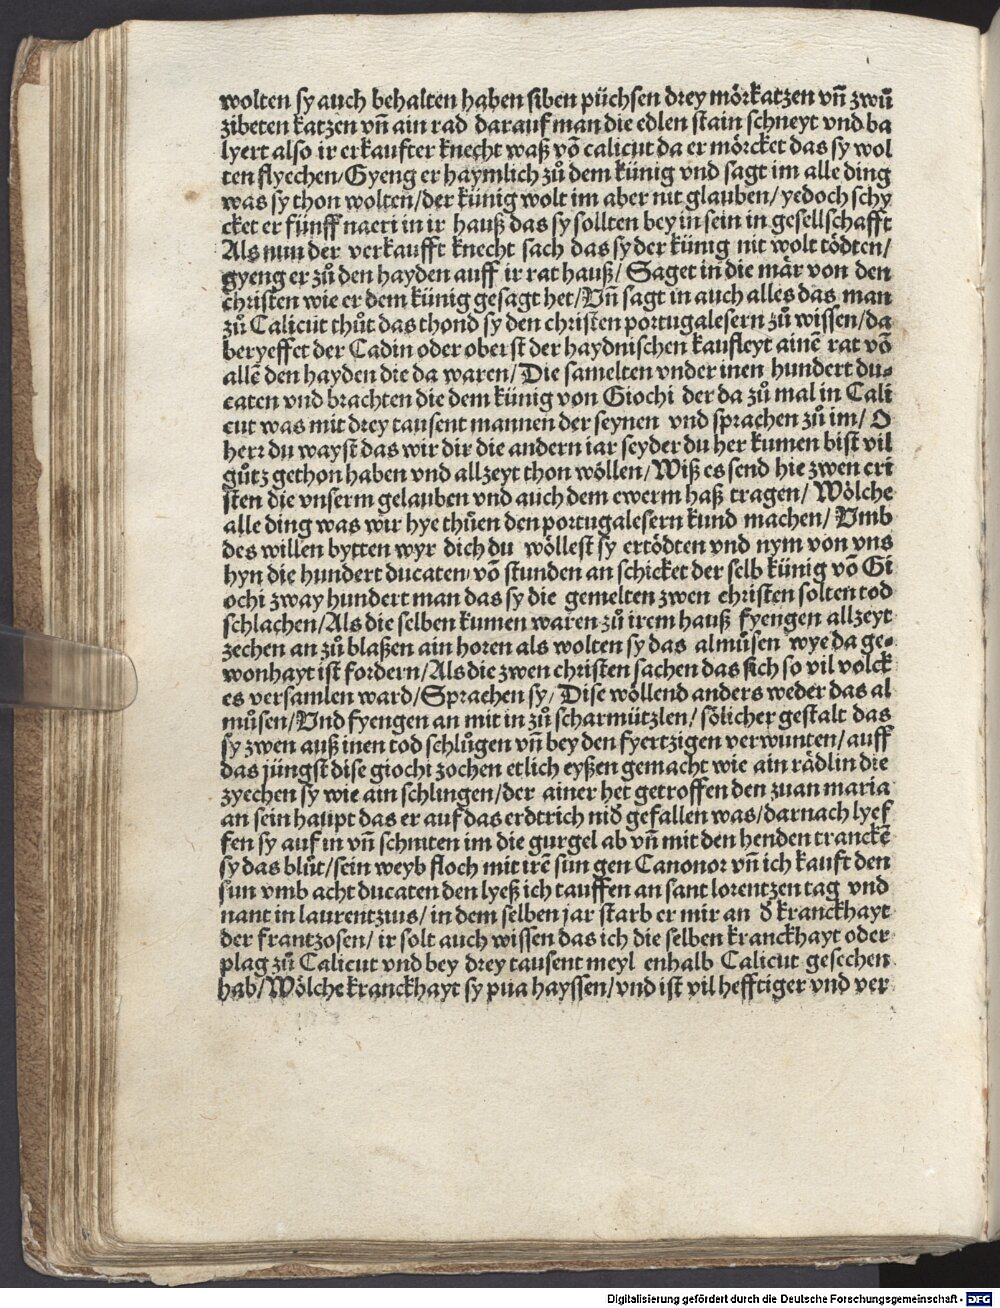 wolten sy auch behalten haben siben püchsen drey mörkatzen vñ zwů
zibeten katzen vñ ain rad darauf man die edlen stain schneyt vnd ba
lyert also ir erkaufter knecht waß võ calicut da er mörcket das sy wol
ten flyechen/Gyeng er haymlich zů dem künig vnd sagt im alle ding
was sy thon wolten/der künig wolt im aber nit glauben/yedoch schy
cket er fünff naeri in ir hauß das sy sollten bey in sein in gesellschafft
Als nun der verkaufft knecht sach das sy der künig nit wolt tödten/
gyeng er zů den hayden auff ir rat hauß/ Saget in die mär von den
christen wie er dem künig gesagt het/Vñ sagt in auch alles das man
zů Calicut thůt das thond sy den christen portugalesern zů wissen/da
beryeffet der Cadin oder oberst der haydnischen kaufleyt ainē rat võ
allē den hayden die da waren/Die samelten vnder inen hundert du-
caten vnd brachten die dem künig von Giochi der da zů mal in Cali
cut was mit drey tausent mannen der seynen vnd sprachen zů im/ O
herr du wayst das wir dir die andern iar seyder du her kumen bist vil
gůtz gethon haben vnd allzeyt thon wöllen/Wiß es send hie zwen cri
sten die vnserm gelauben vnd auch dem ewerm haß tragen/ Wölche
alle ding was wir hye thůen den portugalesern kund machen/ Vmb
des willen bytten wyr dich du wöllest sy ertödten vnd nym von vns
hyn die hundert ducaten/võ stunden an schicket der selb künig võ Gi
ochi zway hundert man das sy die gemelten zwen christen solten tod
schlachen/Als die selben kumen waren zů irem hauß fyengen allzeyt
zechen an zů blaßen ain horen als wolten sy das almůsen wye da ge-
wonhayt ist fordern/Als die zwen christen sachen das sich so vil volck
es versamlen ward/Sprachen sy/Dise wöllend anders weder das al
můsen/Vnd fyengen an mit in zů scharmützlen/sölicher gestalt das
sy zwen auß inen tod schlůgen vñ bey den fyertzigen verwunten/auff
das jüngst dise giochi zochen etlich eyßen gemacht wie ain rädlin die
zyechen sy wie ain schlingen/der ainer het getroffen den zuan maria
an sein haupt das er auf das erdtrich nid gefallen was/darnach lyef
fen sy auf in vñ schniten im die gurgel ab vñ mit den henden tranckē
sy das blůt/sein weyb floch mit irē sun gen Canonor vñ ich kauft den
sun vmb acht ducaten den lyeß ich tauffen an sant lorentzen tag vnd
nant in laurentzius/in dem selben jar starb er mir an d̕ kranckhayt
der frantzosen/ ir solt auch wissen das ich die selben kranckhayt oder
plag zů Calicut vnd bey drey tausent meyl enhalb Calicut gesechen
hab/Wölche kranckhayt sy pua hayssen/vnd ist vil hefftiger vnd ver
Digitalisierung gefördert durch die Deutsche Forschungsgemeinschaft - DFG